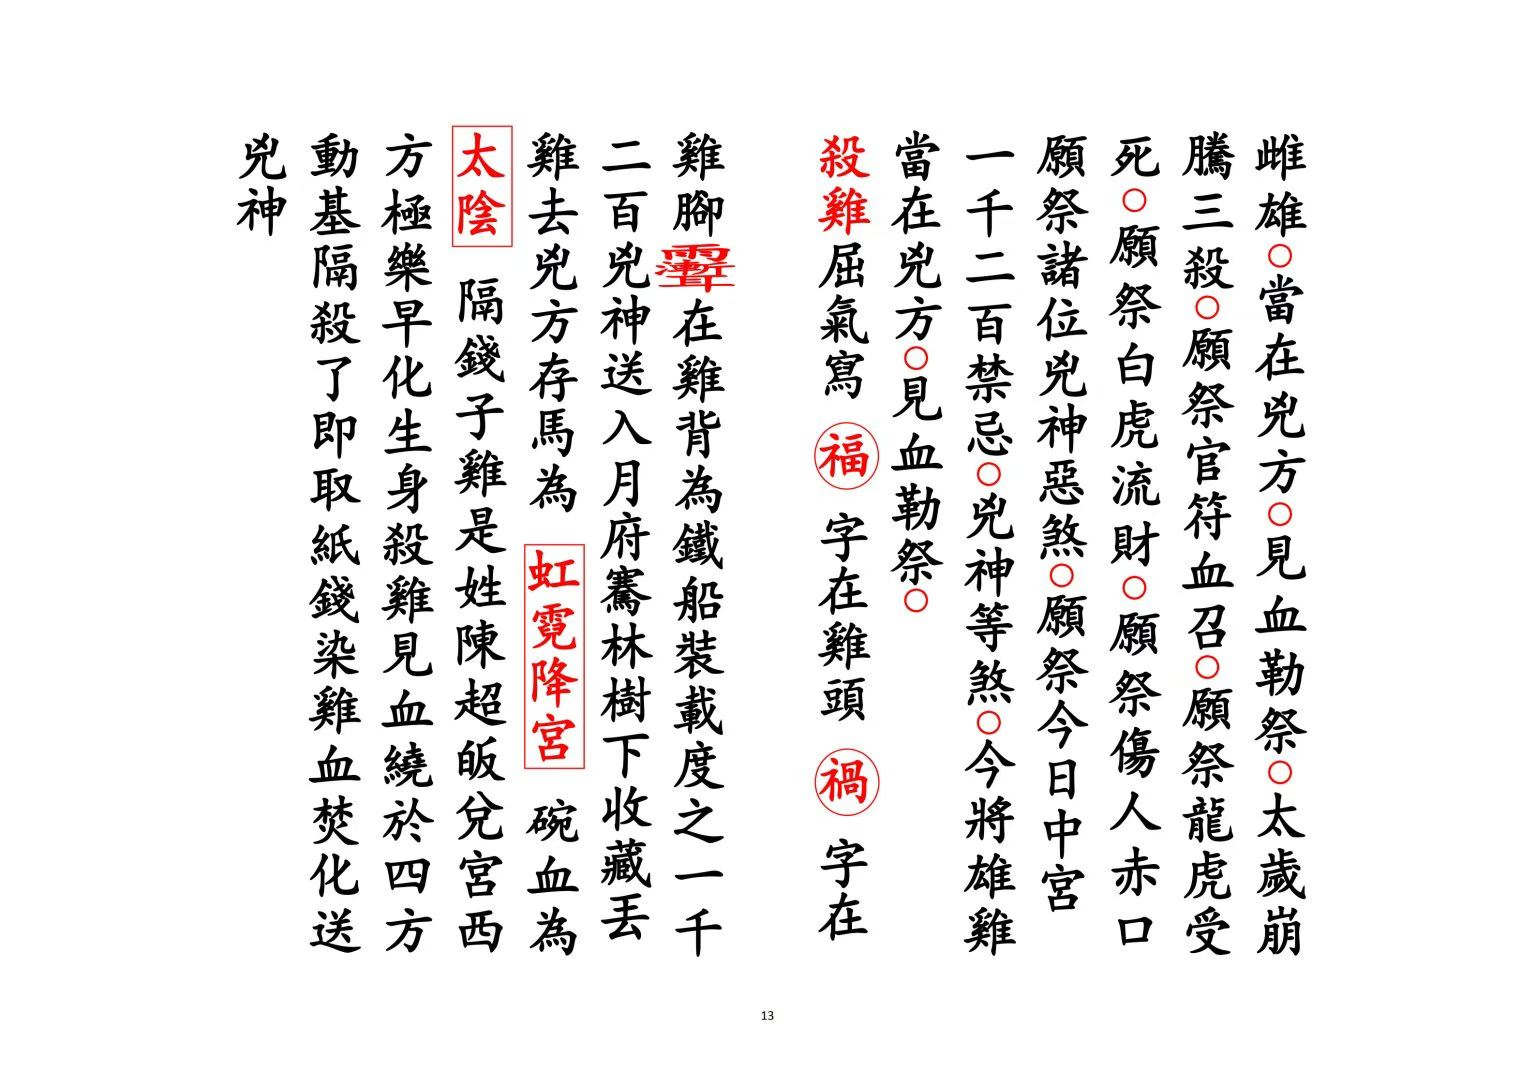 雌雄○當在兇方○見血勒祭○太歲崩
騰三殺○願祭官符血召○願祭龍虎受
死○願祭白虎流財○願祭傷人赤口
願祭諸位兇神惡煞○願祭今日中宮
一千二百禁忌○兇神等煞○今將雄雞
當在兇方○見血勒祭○
殺雞屈氣寫 福 字在雞頭 禍 字在
雞腳在雞背為鐵船裝載度之一千
二百兇神送入月府騫林樹下收藏丟
雞去兇方存馬為 虹霓降宮 碗血為
太陰 隔錢子雞是姓陳超皈兌宮西
方極樂早化生身殺雞見血繞於四方
動基隔殺了即取紙錢染雞血焚化送
兇神
13